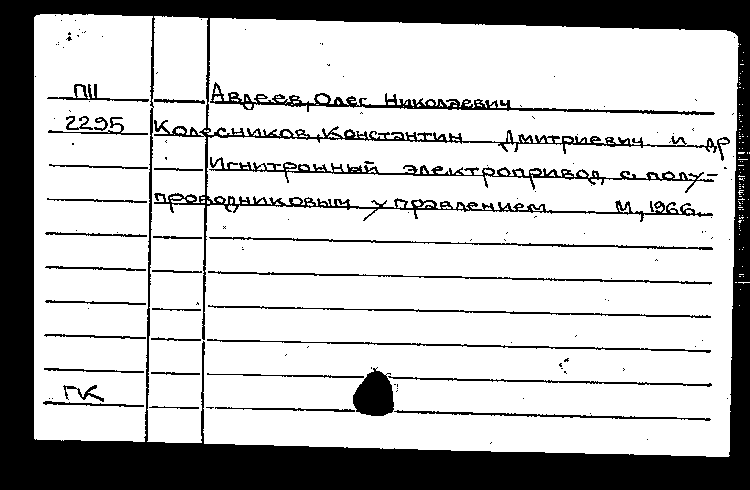 П11 Авдеев, Олег Николаевич
2295 Колесников, Константин Дмитриевич и др
Игнитронный электропривод с полу-
проводниковым управлением. М., 1966.
ПК